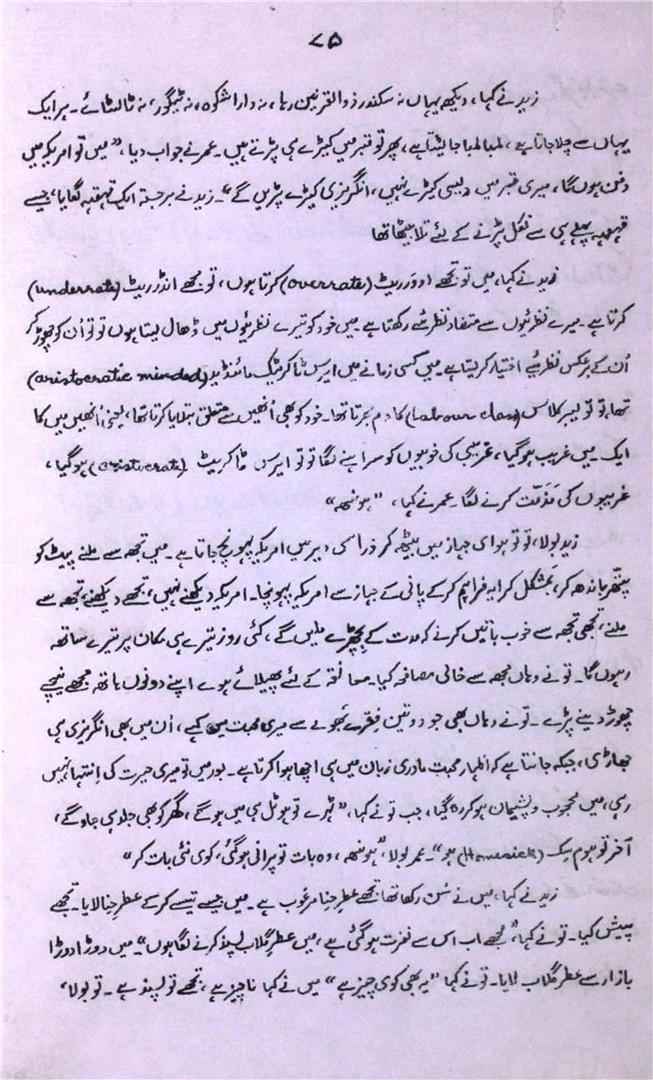 ۷۵
زید نے کہا، دیکھ یہاں نہ سکندر ذوالقرنین رہا، نہ دارا شکوہ، نہ ٹیگور، نہ ٹالسٹائے۔ ہر ایک
یہاں سے چلا جاتا ہے، لمبا لمبا جا لیٹتا ہے، پھر تو قبر میں کیڑے ہی پڑتے ہیں۔ عمر نے جواب دیا، ”میں تو امریکہ میں
دفن ہوں گا، میری قبر میں دیسی کیڑے نہیں، انگریزی کیڑے پڑیں گے“۔ زید نے برجستہ ایک قہقہہ لگایا، جیسے
قہقہہ پہلے ہی سے نکل پڑنے کے لئے تلا بیٹھا تھا
زید نے کہا، میں تو تجھے اوور ریٹ (overrate) کرتا ہوں، تو مجھے انڈر ریٹ (underrate)
کرتا ہے۔ میرے نظرئیوں سے متضاد نظرئے رکھتا ہے۔ میں خود کو تیرے نظرئیوں میں ڈھال لیتا ہوں تو تو اُن کو چھوڑ کر
اُن کے برعکس نظرئیے اختیار کر لیتا ہے۔ میں کسی زمانے میں ایرس ٹاکریٹک مائنڈیڈ (aristocratic minded)
تھا، تو تو لیبر کلاس (Labour class) کا دم بھرتا تھا۔ خود کو بھی اُنھیں سے متعلق بتلایا کرتا تھا، یعنی اُنھیں میں کا
ایک۔ میں غریب ہو گیا، غریبی کی خوبیوں کو سراہنے لگا تو تو ایرس ٹاکریٹ (aristocrate) ہو گیا،
غریبوں کی مذمّت کرنے لگا۔ عمر نے کہا، ”ہونھہ“
زید بولا، تو تو ہوای جہاز میں بیٹھ کر ذرا سی دیر میں امریکہ پہونچ جاتا ہے۔ میں تجھ سے ملنے پیٹ کو
پتھر باندھ کر، بمشکل کرایہ فراہم کر کے پانی کے جہاز سے امریکہ پہونچا۔ امریکہ دیکھنے نہیں، تجھے دیکھنے، تجھ سے
ملنے، تجھی تجھ سے خوب باتیں کرنے کہ مدت کے بچھڑے ملیں گے، کئی روز تیرے ہی مکان پر تیرے ساتھ
رہوں گا۔ تو نے وہاں مجھ سے خالی مصافہ کیا۔ معانقہ کے لئے پھیلائے ہوے اپنے دونوں ہاتھ مجھے نیچے
چھوڑ دینے پڑے۔ تو نے وہاں بھی جو دو تین فقرے بھولے سے میری محبت میں کہے، اُن میں بھی انگریزی ہی
جھاڑی، جبکہ جانتا ہے کہ اظہار محبت مادری زبان میں ہی اچھا ہوا کرتا ہے۔ بعد میں تو میری حیرت کی اِنتہا نہیں
رہی، میں محجوب و پشیمان ہو کر رہ گیا، جب تو نے کہا، ”ٹہرے تو ہوٹل ہی میں ہو گے، گھر کو بھی جلد ہی جاو گے،
آخر تو ہوم سِک (Homesick) ہو“۔ عمر بولا، ”ہونھہ، وہ بات تو پرانی ہو گئی، کوی نئی بات کر“
زید نے کہا، میں نے سُن رکھا تھا تجھے عطرِ حنا مرغوب ہے۔ میں جیسے تیسے کر کے عطرِ حنا لایا۔ تجھے
پیش کیا۔ تو نے کہا، ”مجھے اب اس سے نفرت ہو گئی ہے، میں عطرِ گلاب پسند کرنے لگا ہوں“۔ میں دوڑا دوڑا
بازار سے عطر گلاب لایا۔ تو نے کہا ”یہ بھی کوی چیز ہے“ میں نے کہا نا چیز ہے، تجھے تو پسند ہے۔ تو بولا،